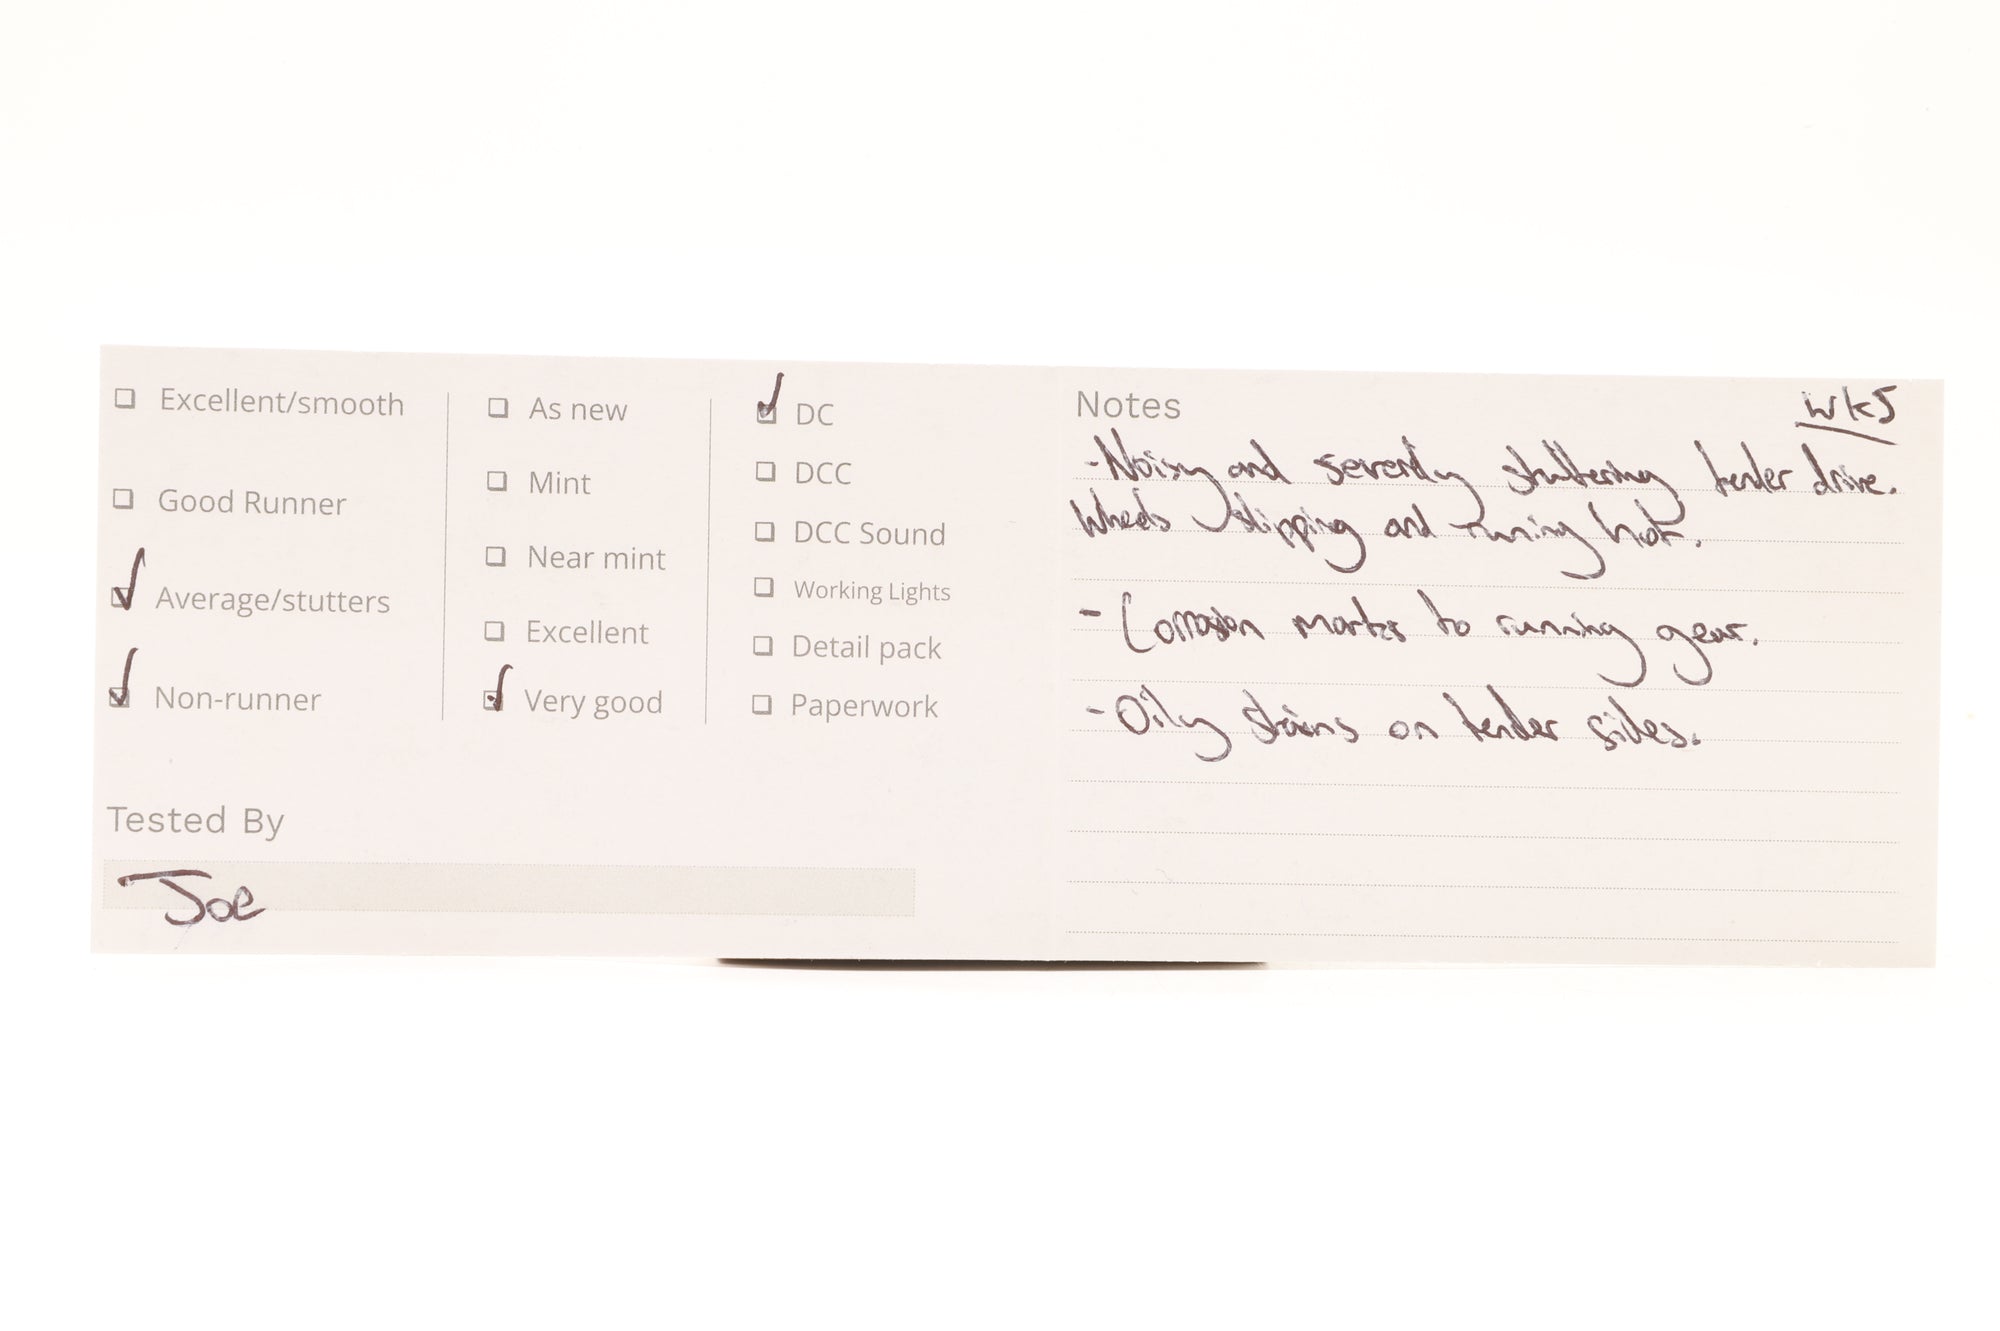 Excellent/smooth
Good Runner
Average/stutters
Non-runner
As new
Mint
Near mint
Excellent
Very good
DC
DCC
DCC Sound
Working Lights
Detail pack
Paperwork
Tested By
Joe
Notes
wk5
-Noisy and severely stuttering tender drive.
Wheels slipping and running hot.
- Corrosion marks to running gear.
- Oily stains on tender sides.